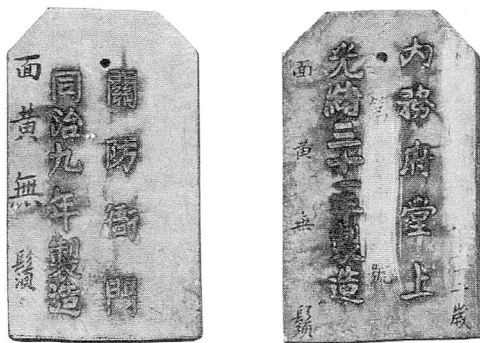 關防衙門
同治九年製造
面黃無鬚
歲
內務府堂上
第 號
光緒三十二年製造
面黃無鬚